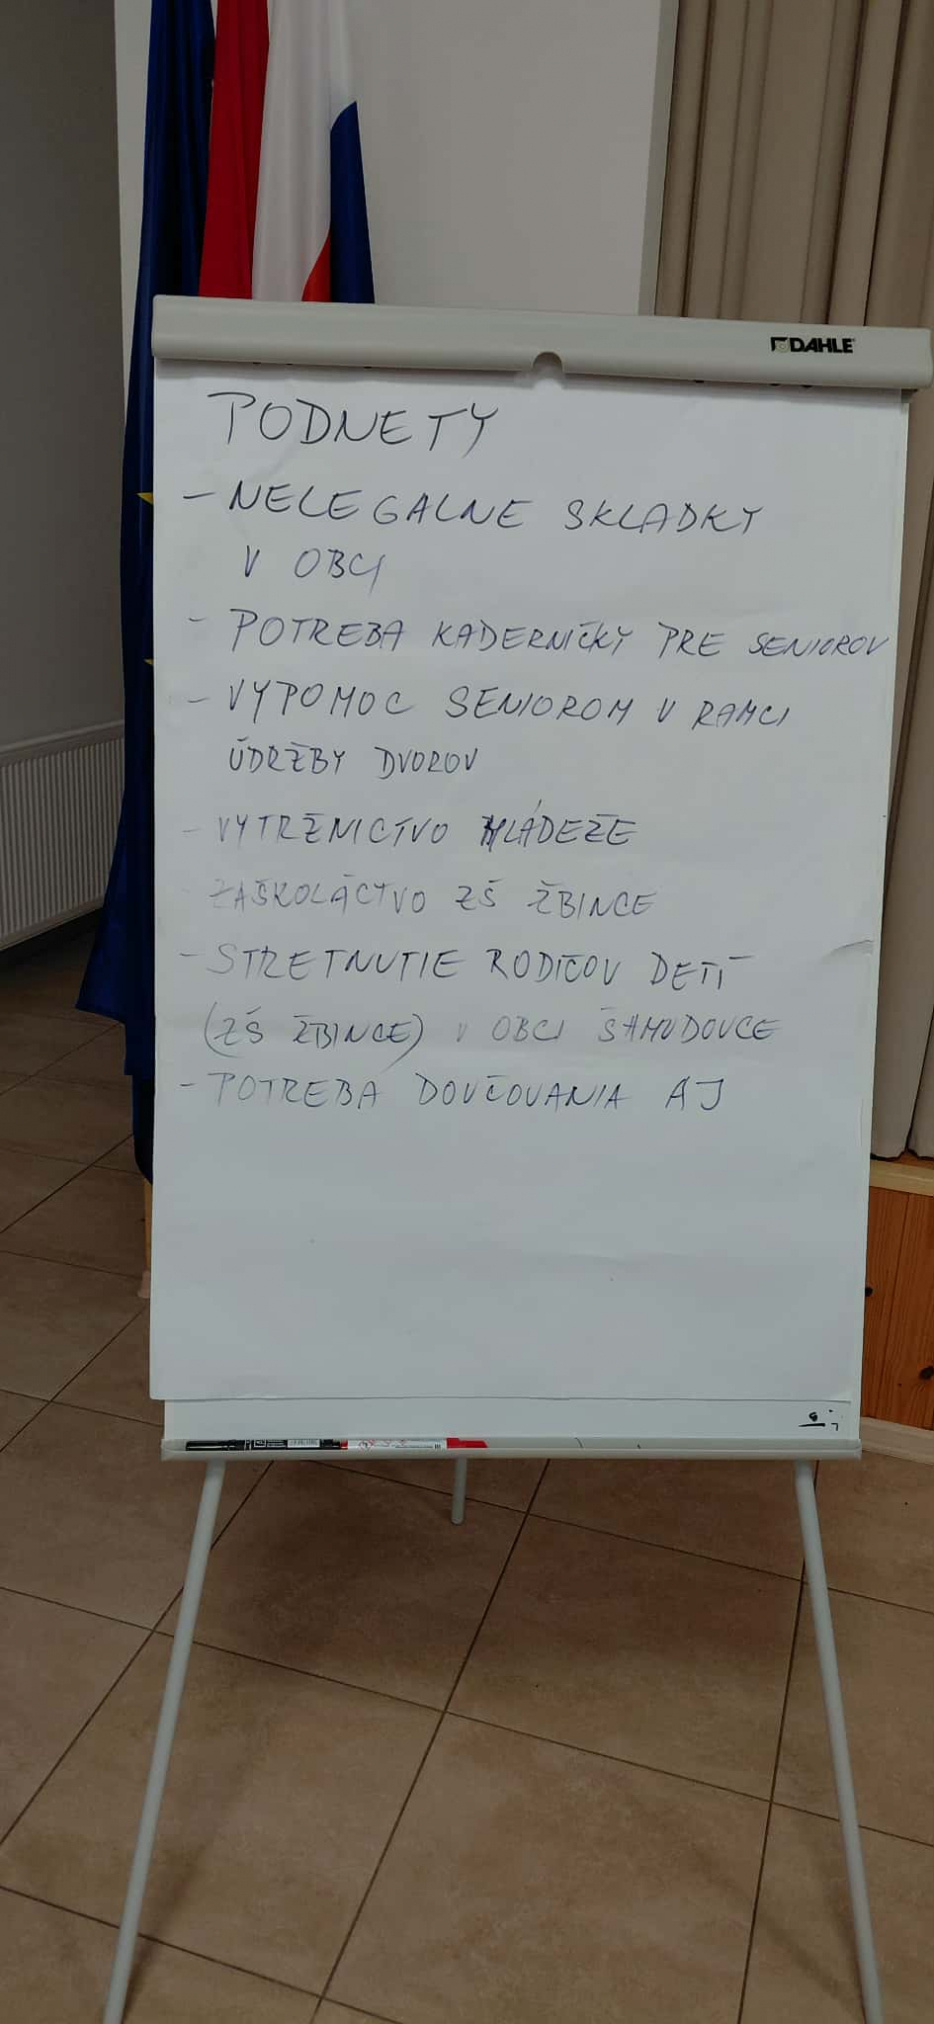 DAHLE
PODNETY
- NELEGALNE SKLADKY
V OBCI
- POTREBA KADERNÍČKY PRE SENIOROV
- VÝPOMOC SENIOROM V RAMCI
ÚDRŽBY DVOROV
- VÝTRŽNICTVO MLÁDEŽE
- ZAŠKOLÁCTVO ZŠ ŽBINCE
- STRETNUTIE RODIČOV DETÍ
(ZŠ ŽBINCE) V OBCI ŠAMUDOVCE
- POTREBA DOUČOVANIA AJ